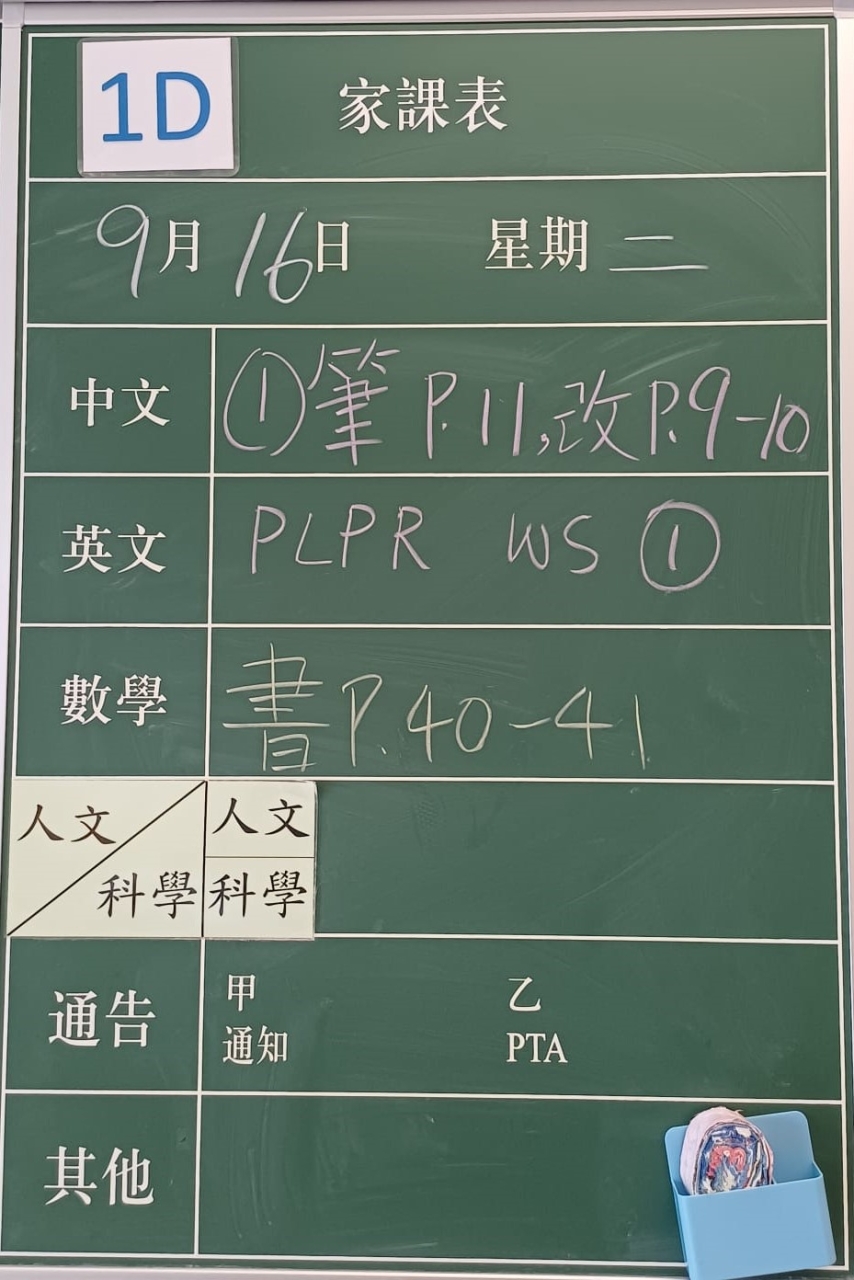 1D 家課表
9月16日 星期二
中文 ①筆 P.11,改P.9-10
英文 PLPR WS ①
數學 書P.40-41
人文 人文
科學 科學
通告 甲 乙
通知 PTA
其他